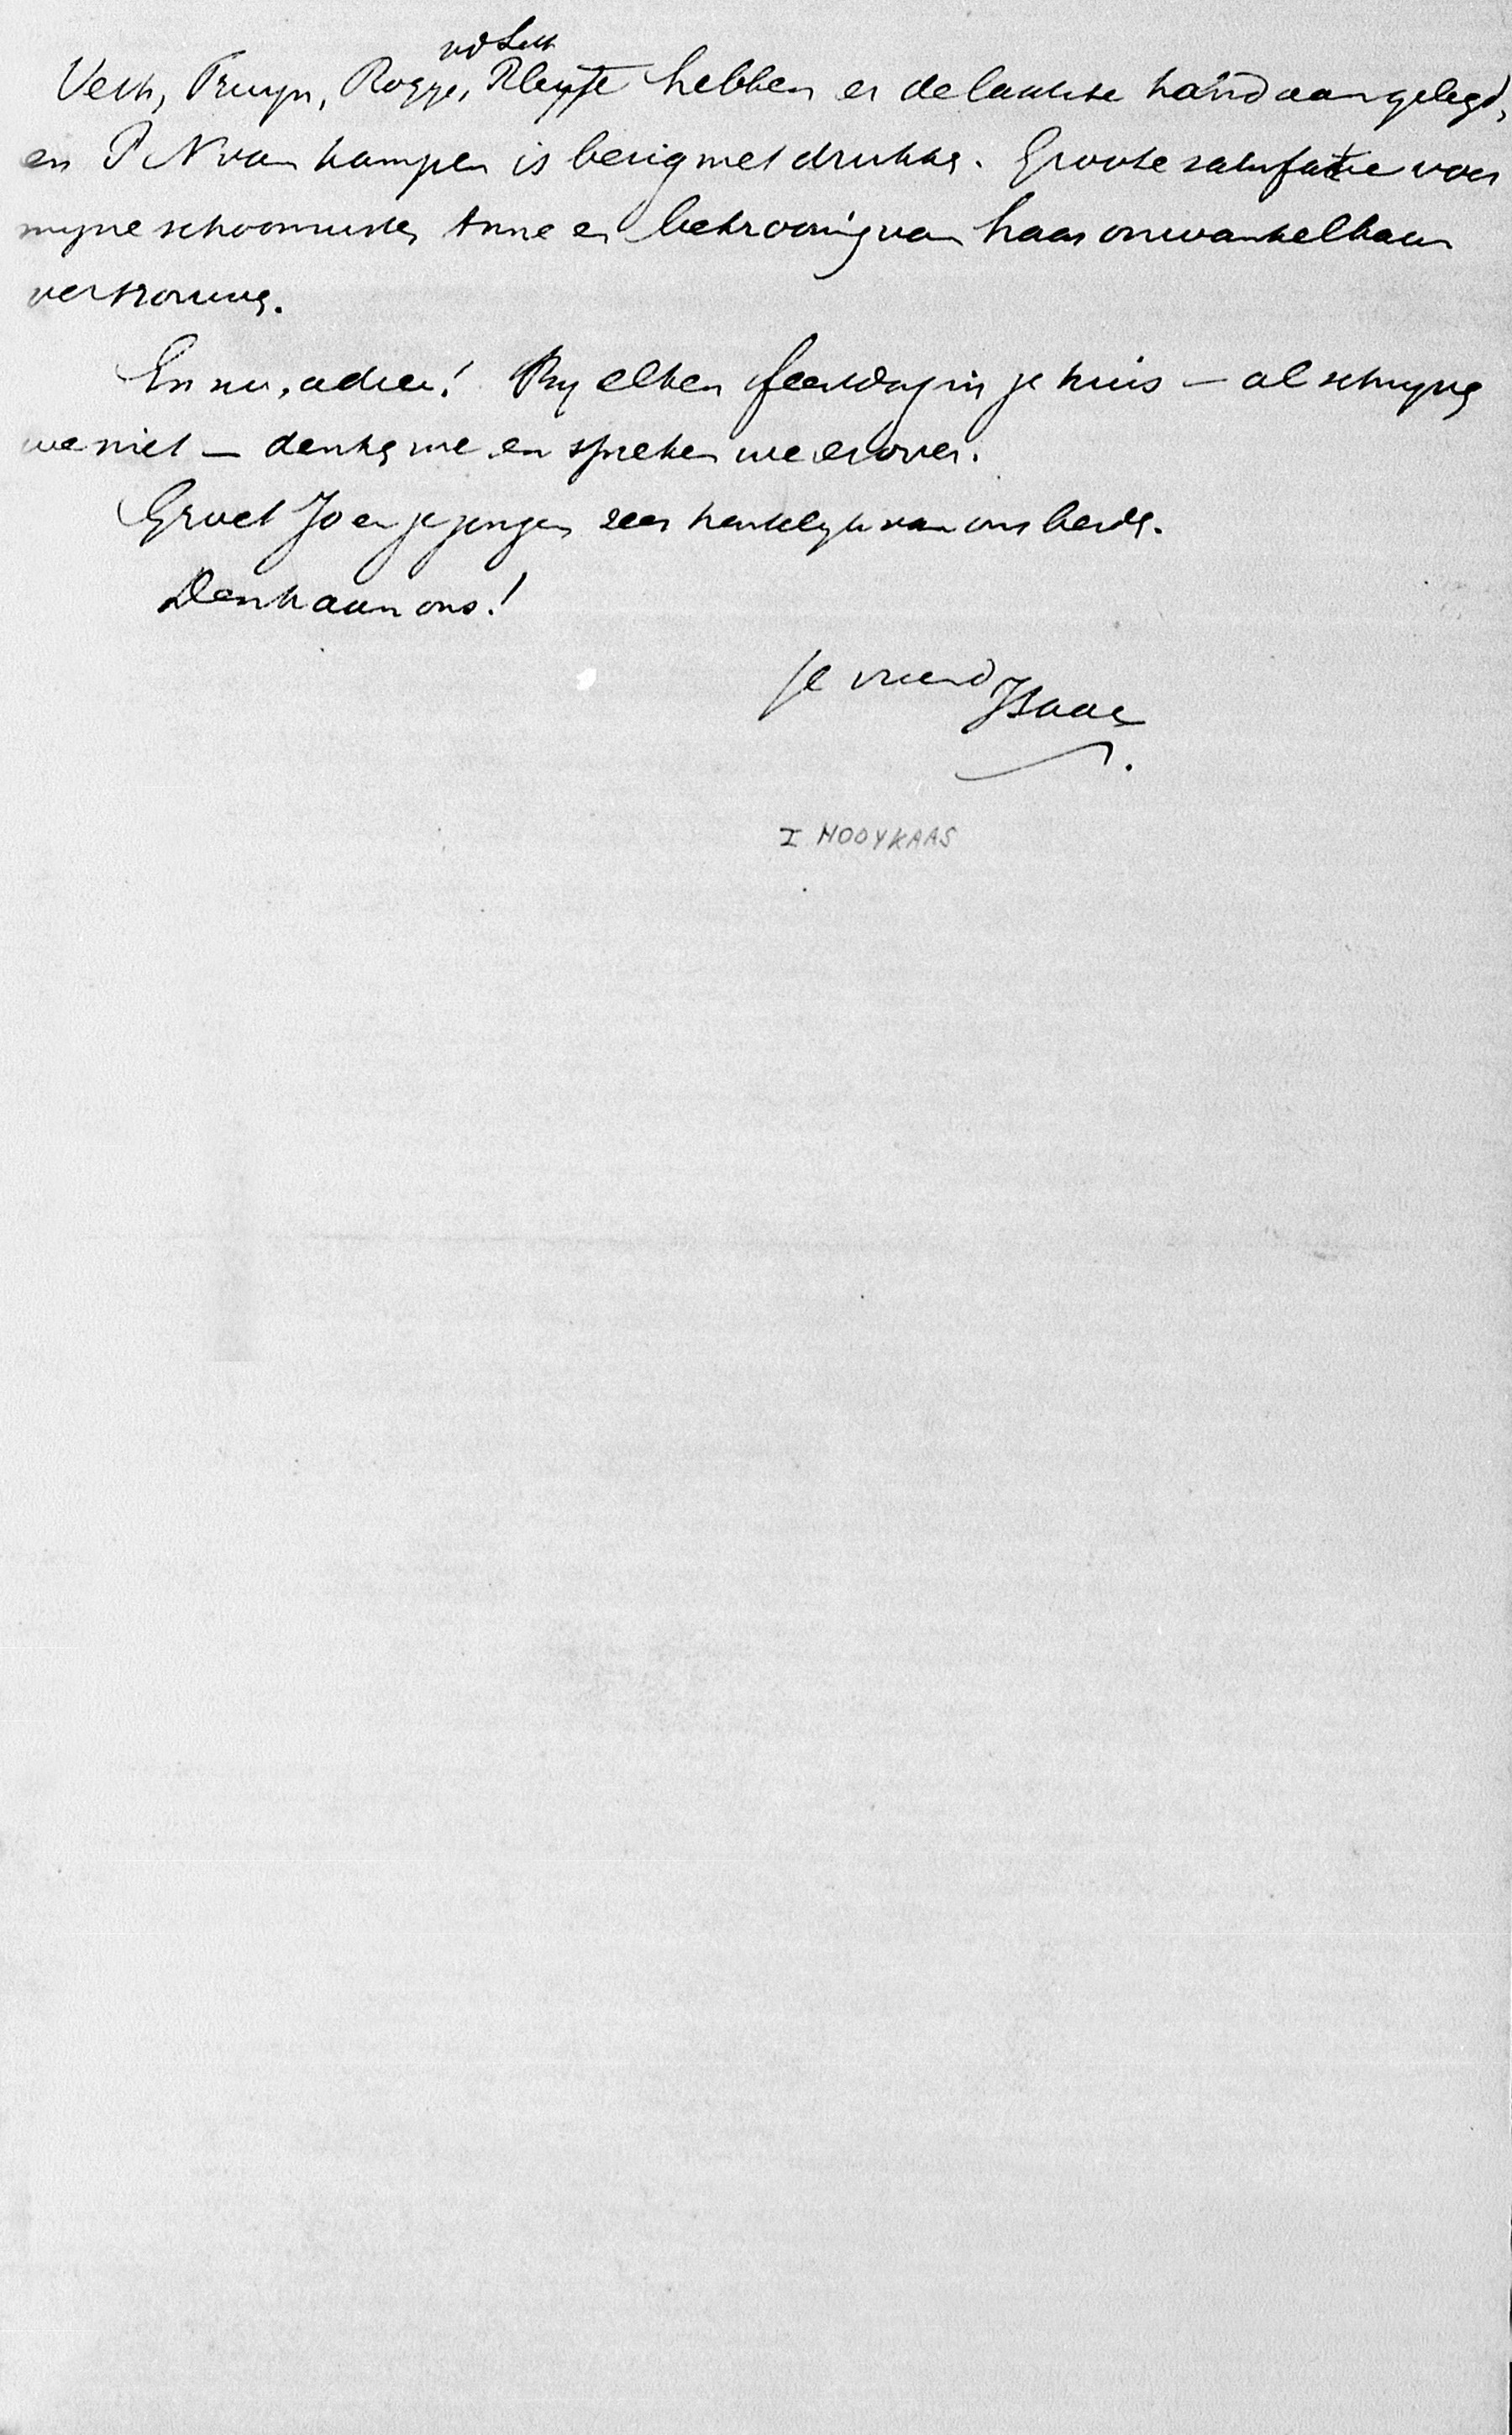 vd Lith
Veth, Fruyn, Rogge, Pleyte hebben er de laatste hand aan gelegd,
en P N van Kampen is bezig met drukken. Groote satisfactie voor
myne schoonmoeder Anne en bekrooning van haar onwankelbaar
vertrouwen.
En nu, adieu! By elken feestdag in je huis – al schryven
we niet – denken we en spreken we er over.
Groet Jo en je jongens zeer hartelyk van ons beide.
Denk aan ons!
Je vriend Isaac
I HOOYKAAS